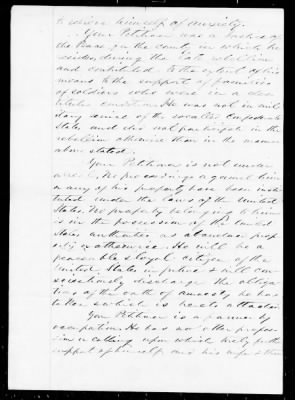 to relieve himself of anxiety.
Your Petitioner was a Justice of
the Peace, for the county in which he
resides, during the late rebellion
and contributed to the extent of his
means to the support of families
of soldiers who were in a des-
titute condition. He was not in mili-
tary service of the so called Confederate
States and did not participate in the
rebellion otherwise than in the manner
above stated.
Your Petitioner is not under
arrest. No proceedings against him
or any of his property have been insti-
tuted under the laws of the United
States. No property belonging to him
is in the possession of the United
States authorities as abandoned prop-
erty or otherwise. He will be a
peaceable & loyal citizen of the
United States in future & will con-
scientiously discharge the obliga-
tions of the oath of amnesty he has
taken which is hereto attached.
Your Petitioner is a farmer by
occupation. He has no other profes-
sion or calling upon which he relies for the
support of himself and his wife & three